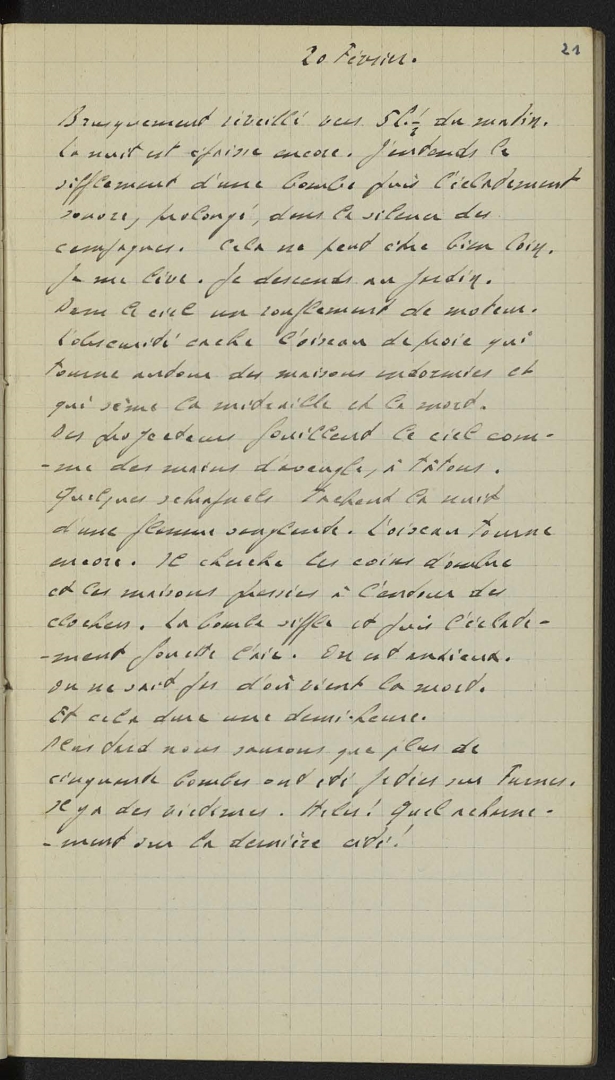 21
20 Février.
Brusquement réveillé vers 5 h. ½ du matin.
La nuit est épaisse encore. J'entends le
sifflement d'une bombe puis l'éclatement
sonore, prolongé, dans le silence des
campagnes. Cela ne peut être bien loin.
Je me lève. Je descends au jardin.
Dans le ciel un ronflement de moteur.
L'obscurité cache l'oiseau de proie qui
tourne autour des maisons endormies et
qui sème la mitraille et la mort.
Des projecteurs fouillent le ciel com-
-me des mains d'aveugle, à tâtons.
Quelques schrapnels tachent la nuit
d'une flamme sanglante. L'oiseau tourne
encore. Il cherche les coins d'ombre
et les maisons pressées à l'entour des
clochers. La bombe siffle et puis l'éclate-
-ment fouette l'air. On est anxieux.
On ne sait pas d'où vient la mort.
Et cela dure une demi-heure.
Plus tard nous saurons que plus de
cinquante bombes ont été jetées sur Furnes.
Il y a des victimes. Hélas! Quel acharne-
-ment sur la dernière cité!